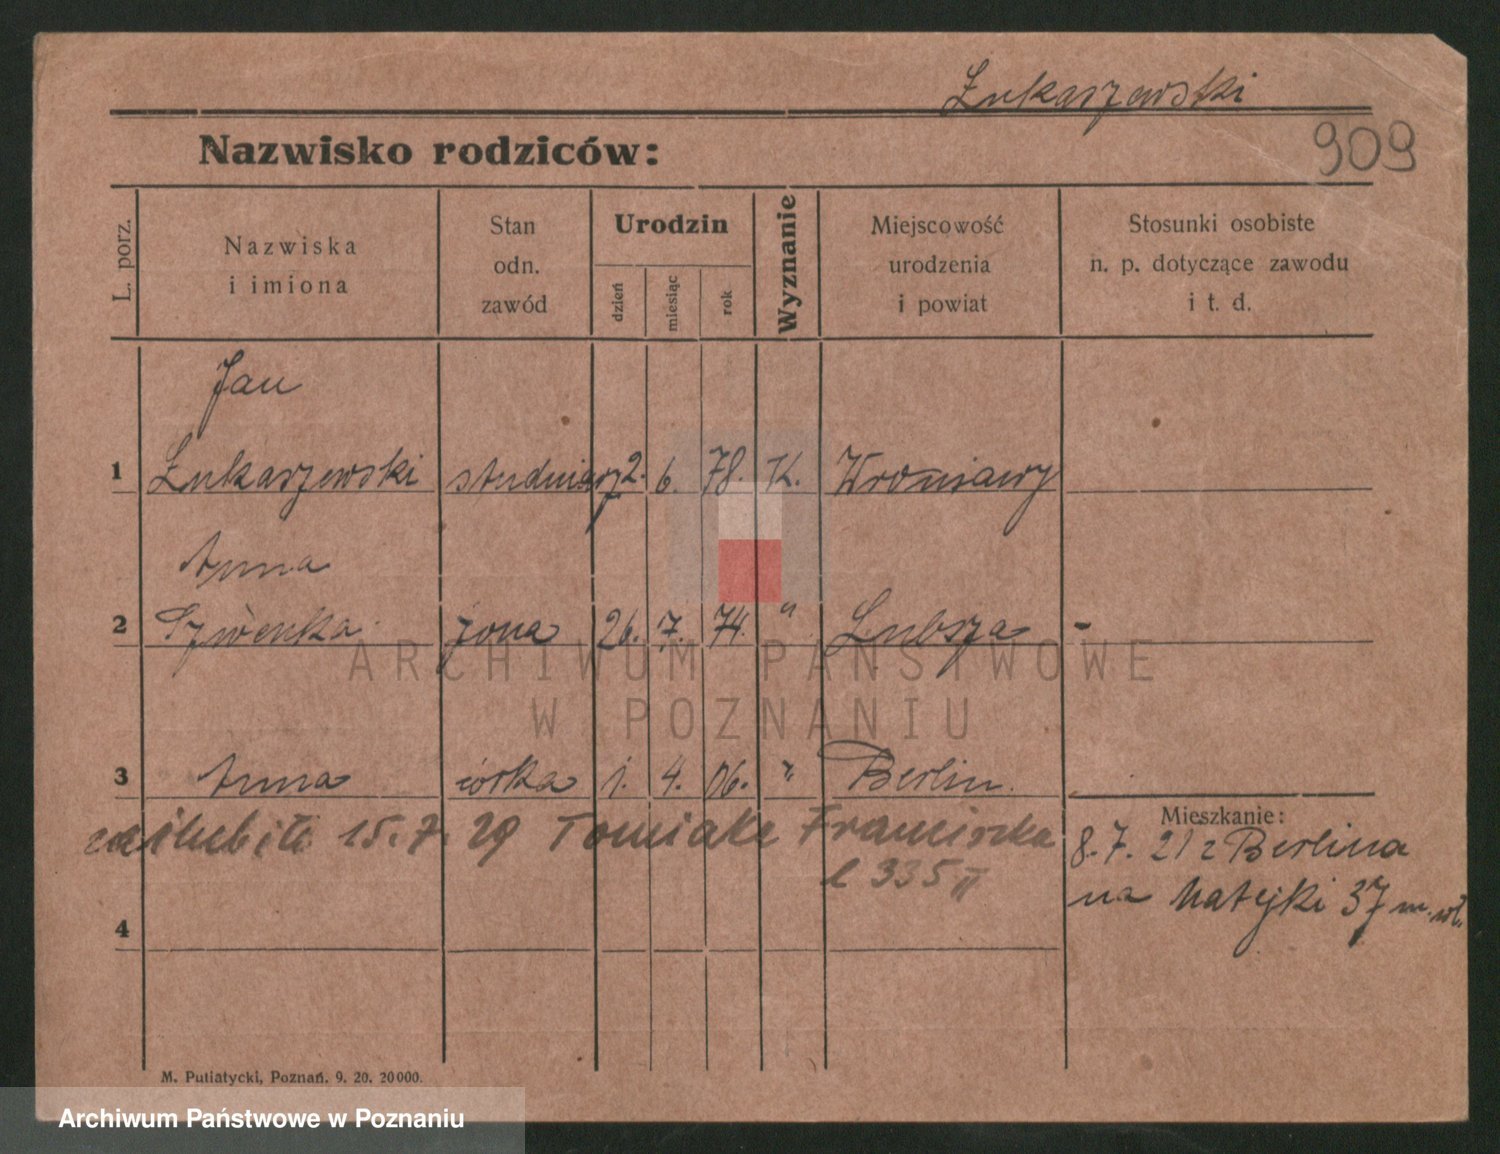 Łukaszewski
909
Nazwisko rodziców:
L. porz.
Nazwiska
i imiona
Stan
odn.
zawód
Urodzin
dzień
miesiąc
rok
Wyznanie
Miejscowość
urodzenia
i powiat
Stosunki osobiste
n. p. dotyczące zawodu
i t. d.
Jan
1 Łukaszewski studniarz 2. 6. 78. K. Wroniawy
Anna
2 żona 26. 7. 74. " Lubsza -
3 Anna córka 1. 4. 06. " Berlin.
zaślubiła 15.7.29 Tomiaka Franciszka
l 335 II
Mieszkanie:
8.7. 21 z Berlina
na Matejki 37
4
M. Putiatycki, Poznań. 9. 20. 20000.
ARCHIWUM PAŃSTWOWE
W POZNANIU
Archiwum Państwowe w Poznaniu